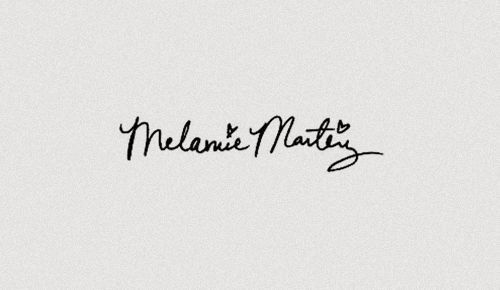 Melanie Martinez